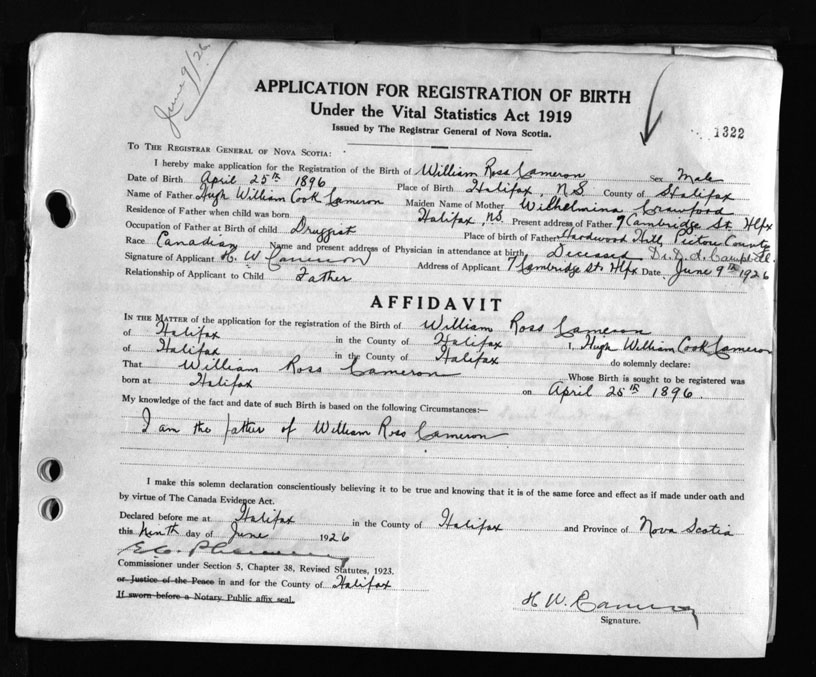 June 9/26
APPLICATION FOR REGISTRATION OF BIRTH
Under the Vital Statistics Act 1919
Issued by The Registrar General of Nova Scotia.
1322
TO THE REGISTRAR GENERAL OF NOVA SCOTIA:
I hereby make application for the Registration of the Birth of William Ross Cameron Sex Male
Date of Birth April 25th 1896 Place of Birth Halifax, N.S. County of Halifax
Name of Father Hugh William Cook Cameron Maiden Name of Mother Wilhelmina Crawford
Residence of Father when child was born Halifax, N.S. Present address of Father 7 Cambridge St. Hlfx
Occupation of Father at Birth of child Druggist Place of birth of Father Hardwood Hill, Pictou County
Race Canadian Name and present address of Physician in attendance at birth Deceased Dr. D. A. Campbell.
Signature of Applicant H. W. Cameron Address of Applicant 7 Cambridge St. Hlfx Date June 9th 1926
Relationship of Applicant to Child Father
AFFIDAVIT
IN THE MATTER of the application for the registration of the Birth of William Ross Cameron
of Halifax in the County of Halifax I, Hugh William Cook Cameron
of Halifax in the County of Halifax do solemnly declare:
That William Ross Cameron Whose Birth is sought to be registered was
born at Halifax on April 25th 1896.
My knowledge of the fact and date of such Birth is based on the following Circumstances:—
I am the father of William Ross Cameron
I make this solemn declaration conscientiously believing it to be true and knowing that it is of the same force and effect as if made under oath and
by virtue of The Canada Evidence Act.
Declared before me at Halifax in the County of Halifax and Province of Nova Scotia
this Ninth day of June 1926
Commissioner under Section 5, Chapter 38, Revised Statutes, 1923.
or Justice of the Peace in and for the County of Halifax
If sworn before a Notary Public affix seal.
H. W. Cameron
Signature.